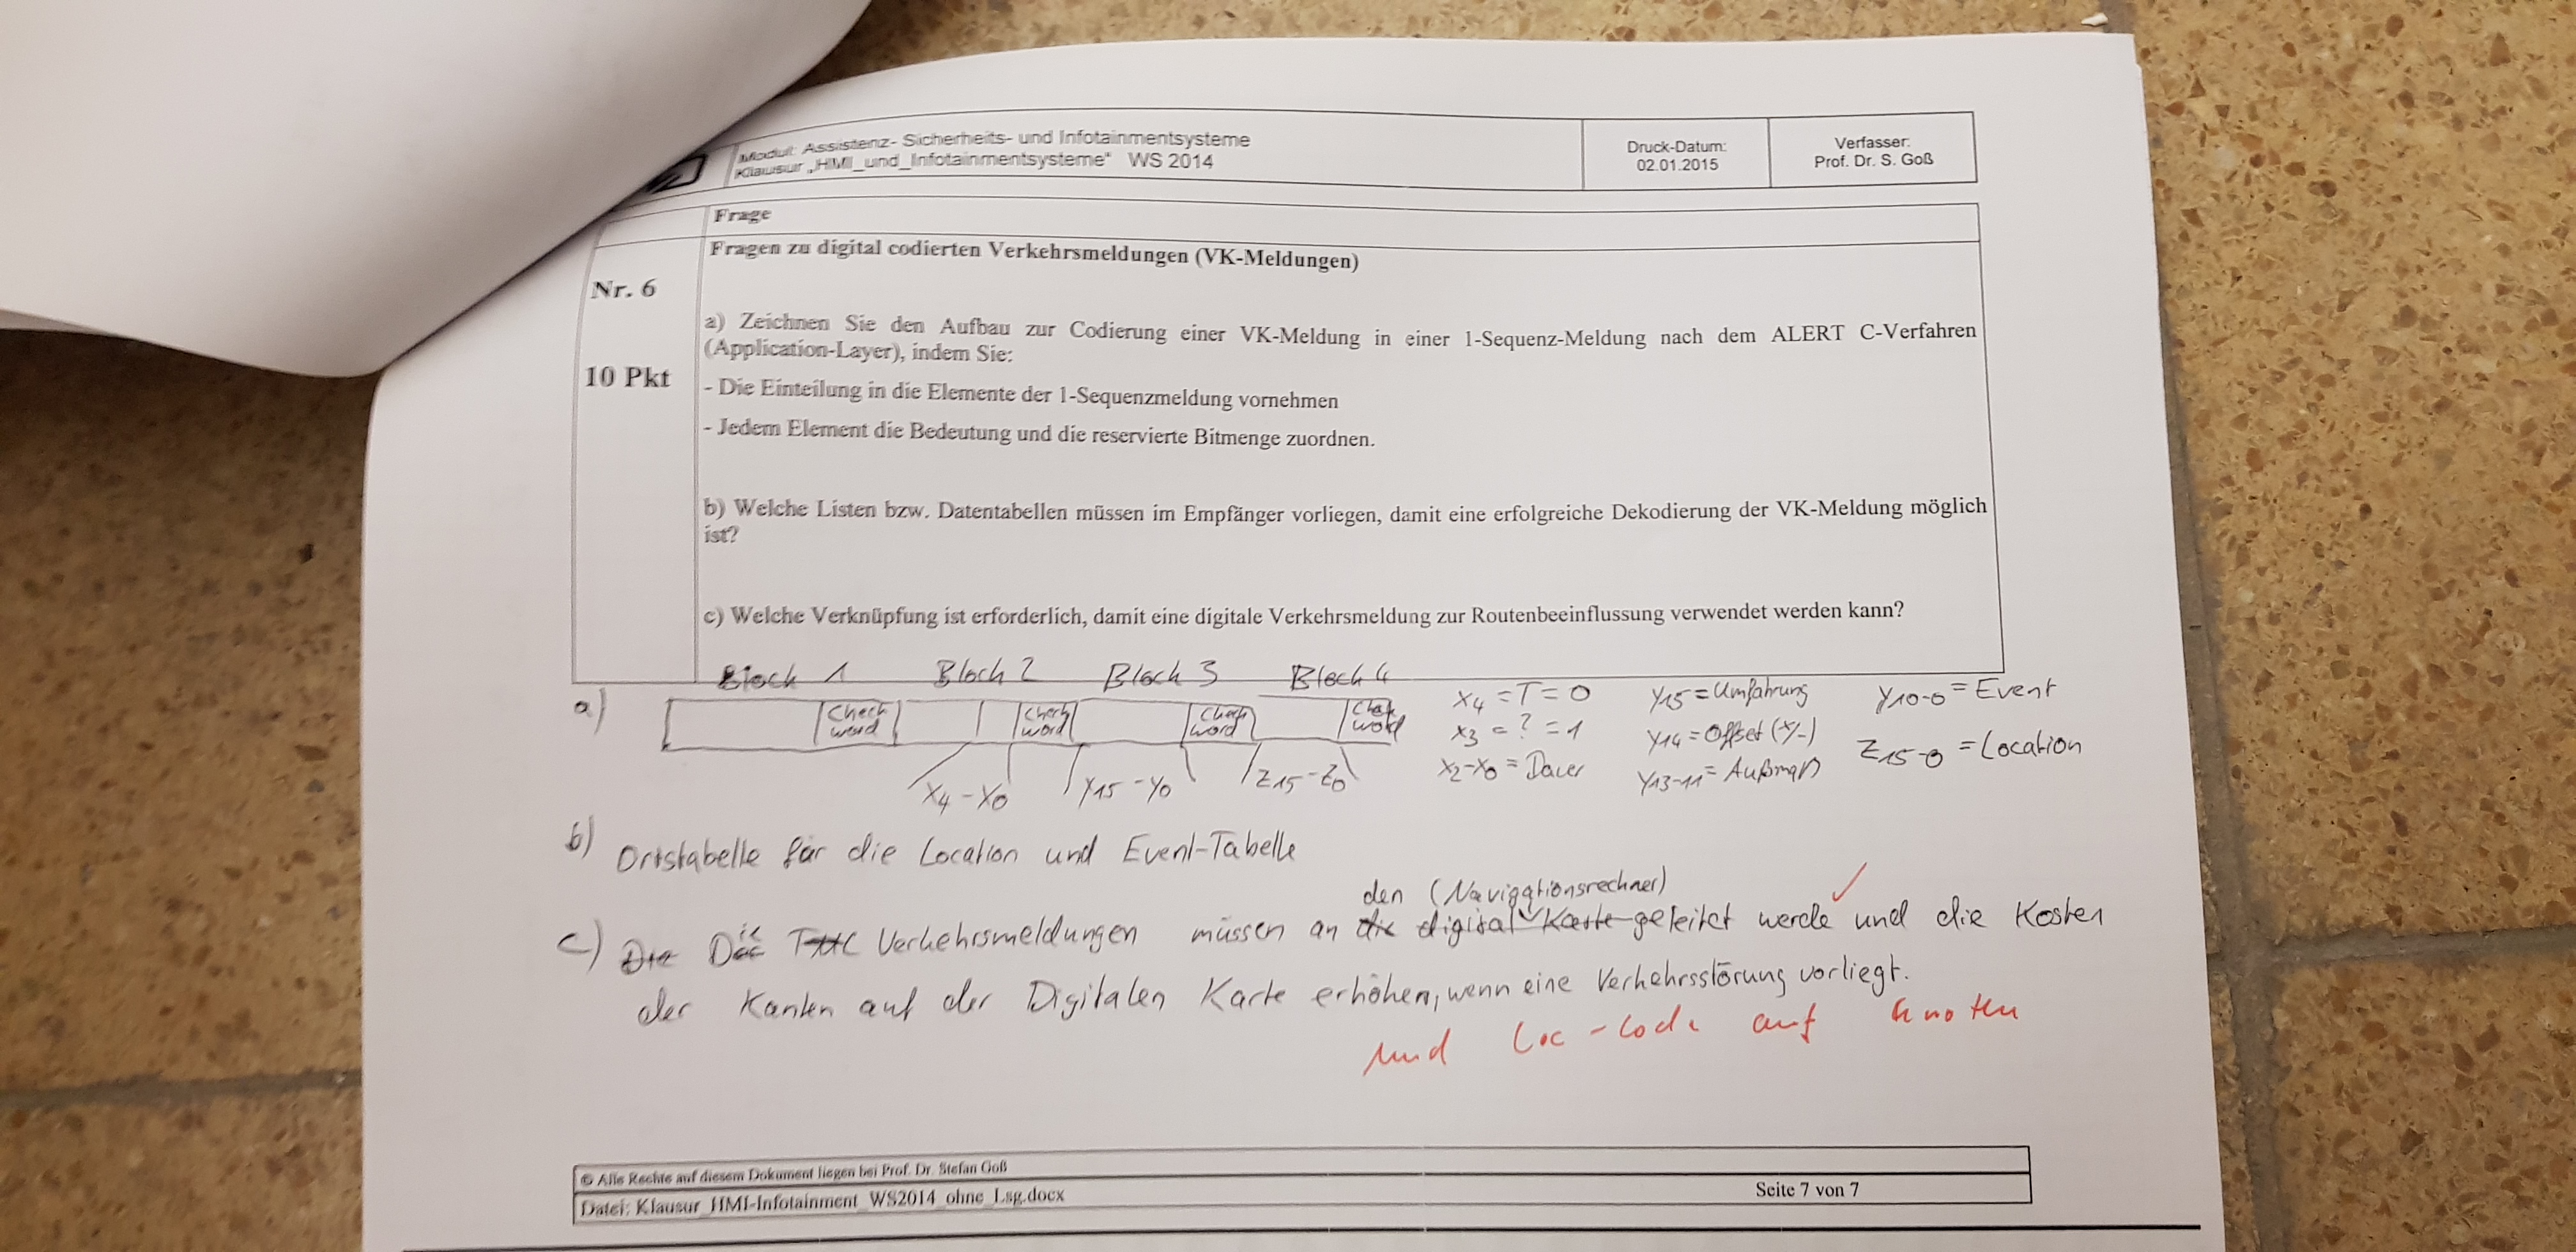 Modul: Assistenz- Sicherheits- und Infotainmentsysteme
Klausur „HMI_und_Infotainmentsysteme" WS 2014
Druck-Datum:
02.01.2015
Verfasser:
Prof. Dr. S. Goß
Frage
Nr. 6
10 Pkt
Fragen zu digital codierten Verkehrsmeldungen (VK-Meldungen)
a) Zeichnen Sie den Aufbau zur Codierung einer VK-Meldung in einer 1-Sequenz-Meldung nach dem ALERT C-Verfahren
(Application-Layer), indem Sie:
- Die Einteilung in die Elemente der 1-Sequenzmeldung vornehmen
- Jedem Element die Bedeutung und die reservierte Bitmenge zuordnen.
b) Welche Listen bzw. Datentabellen müssen im Empfänger vorliegen, damit eine erfolgreiche Dekodierung der VK-Meldung möglich
ist?
c) Welche Verknüpfung ist erforderlich, damit eine digitale Verkehrsmeldung zur Routenbeeinflussung verwendet werden kann?
Block 1 Block 2 Block 3 Block 4
a)
Check word
Check word
Check word
Check word
X4 - X0
Y15 - Y0
Z15 - Z0
X4 = T = 0
X3 = ? = 1
X2-X0 = Dauer
Y15 = Umfahrung
Y14 = Offset (+/-)
Y13-11 = Außmaß
Y10-0 = Event
Z15-0 = Location
b) Ortstabelle für die Location und Event-Tabelle
den (Navigationsrechner)
c) Die Die TMC Verkehrsmeldungen müssen an die digital Karte geleitet werde und die Kosten
der Kanten auf der Digitalen Karte erhöhen, wenn eine Verkehrsstörung vorliegt.
und Loc-Code auf Knoten
© Alle Rechte auf diesem Dokument liegen bei Prof. Dr. Stefan Goß
Datei: Klausur_HMI-Infotainment_WS2014_ohne_Lsg.docx
Seite 7 von 7